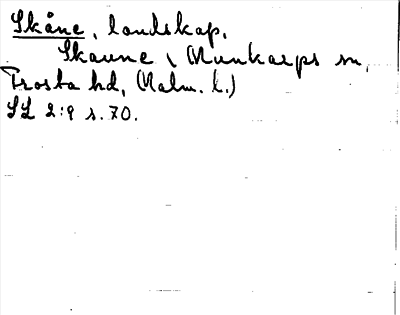 Skåne, landskap.
Skaune i Munkarps sn,
Frosta hd, (Malm. l.)
SL 2:9 s. 70.